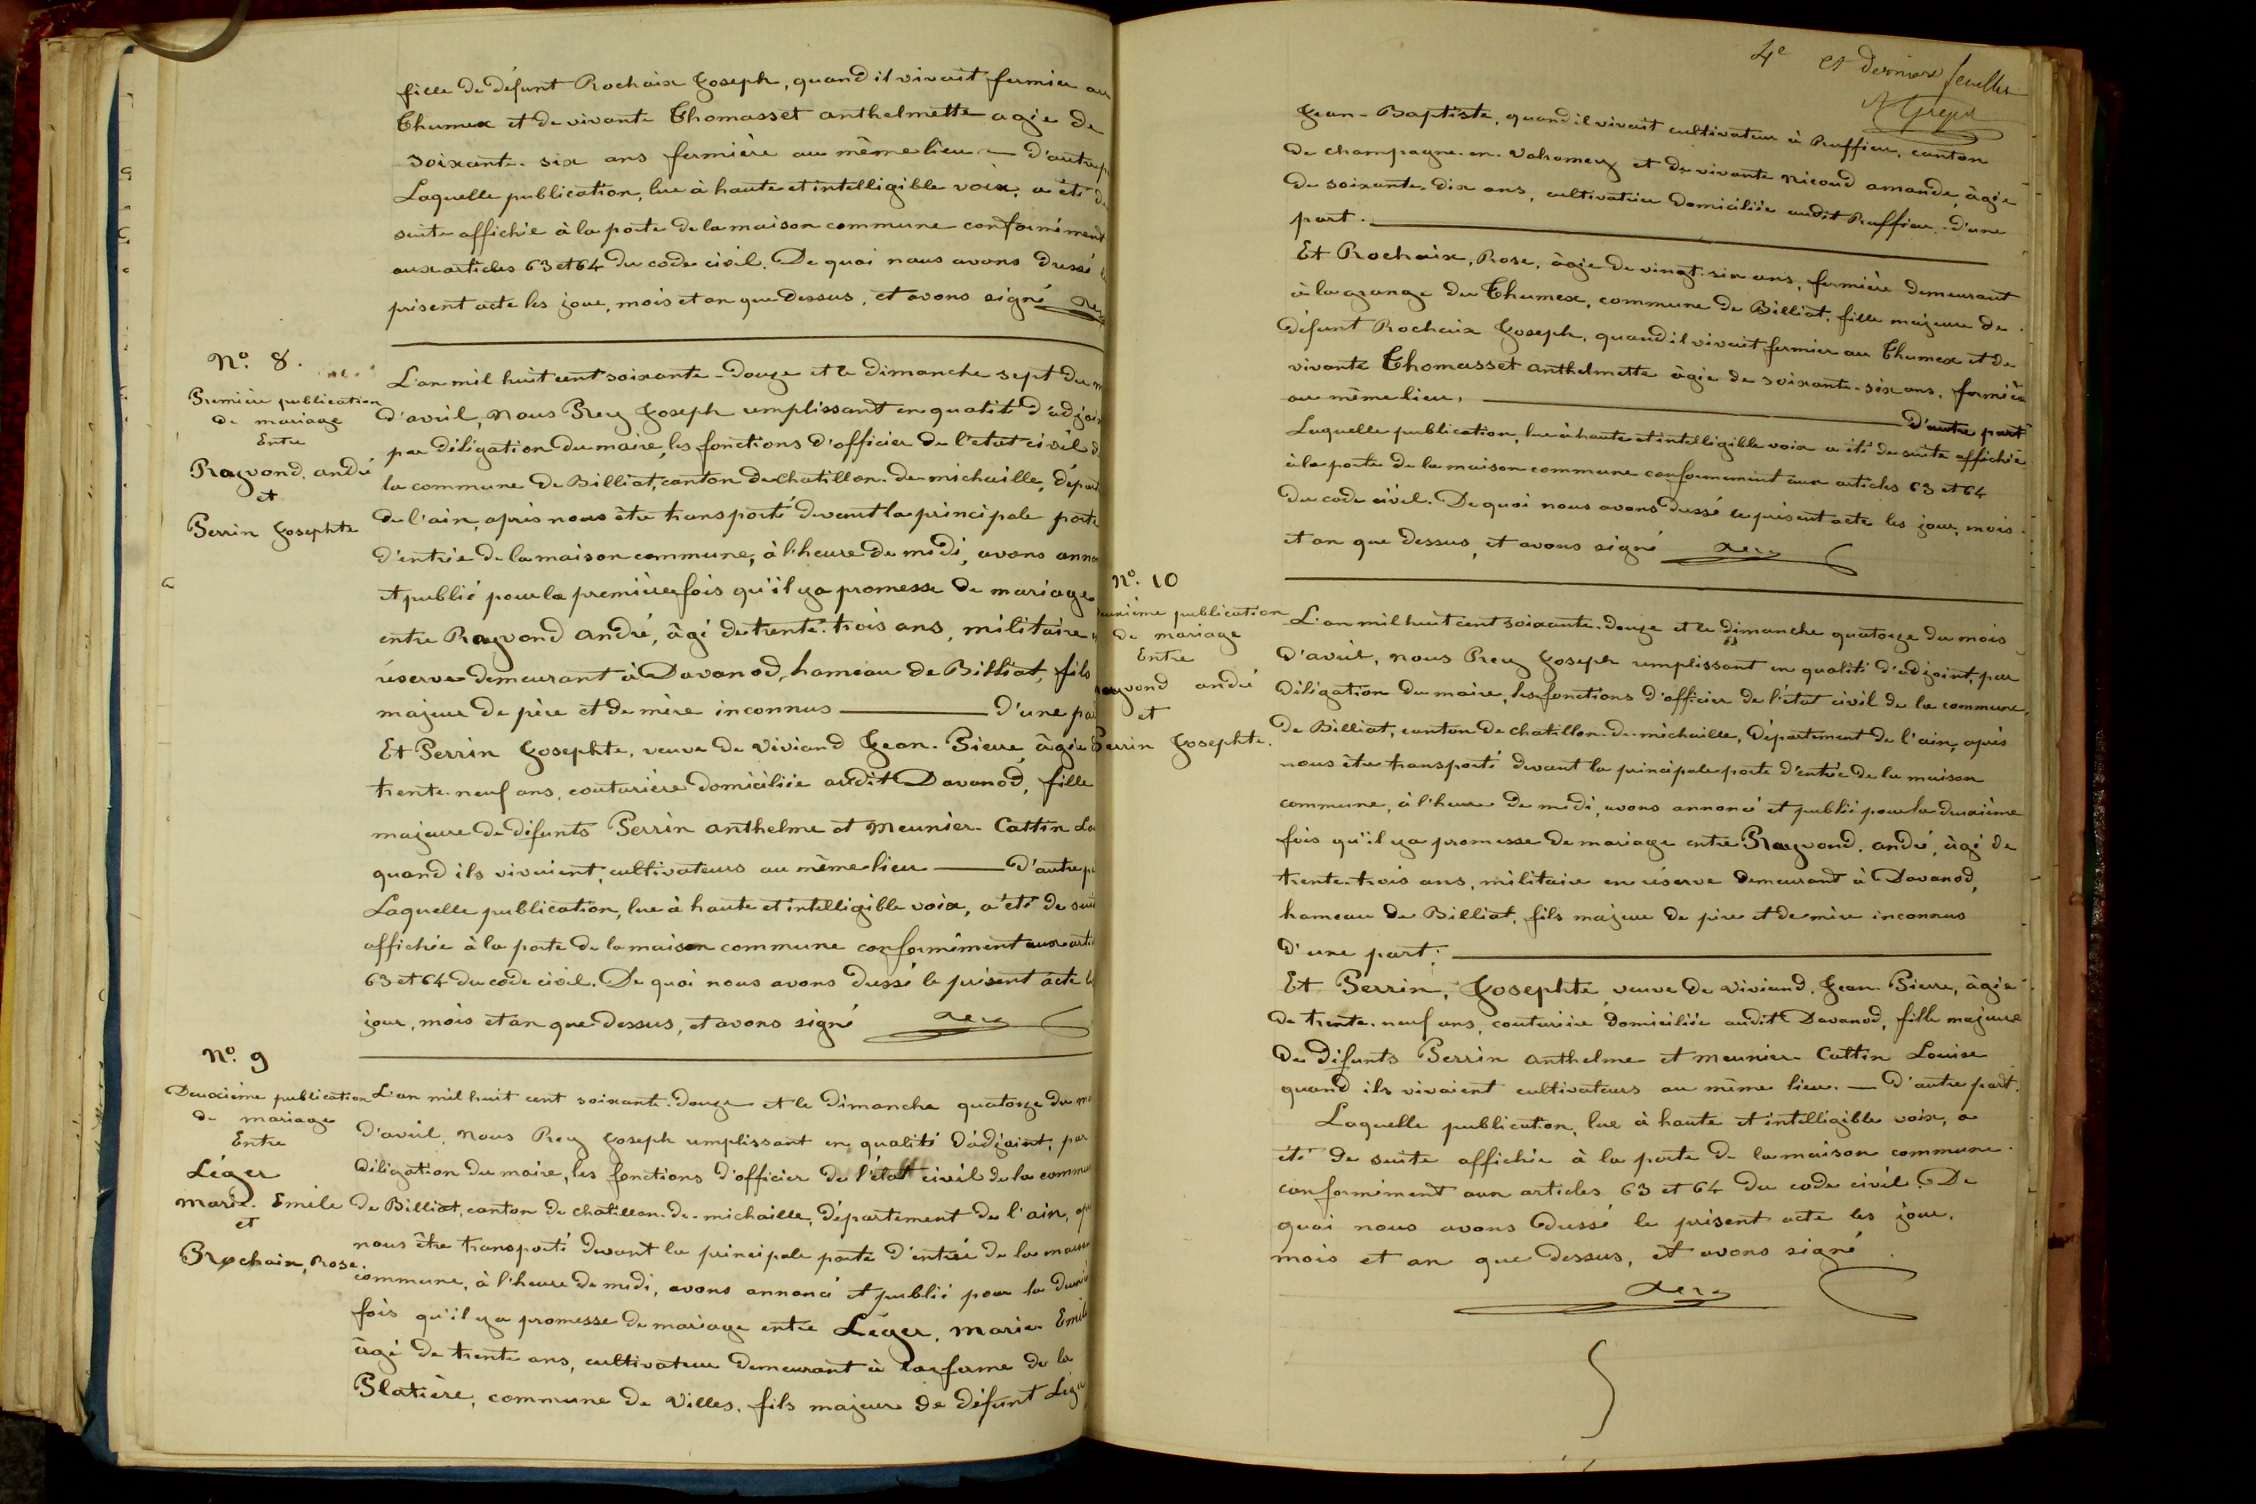 fille de défunt Rochaix Joseph, quand il vivait fermier au
Thumex et de vivante Thomasset anthelmette agée de
soixante-six ans fermière au même lieu — D'autre p
Laquelle publication, lue à haute et intelligible voix, a été de
suite affichée à la porte de la maison commune conformément
aux articles 63 et 64 du code civil. De quoi nous avons dressé le
présent acte les jour, mois et an que dessus, et avons signé
N.° 8.
Première publication
de mariage
Entre
Rayvond, andré
et
Perrin Josephte
L'an mil huit cent soixante-douze et le dimanche sept du m
d'avril, nous Prey Joseph remplissant en qualité d'adjoin
par délégation du maire, les fonctions d'officier de l'état civil d
la commune de Billiat, canton de chatillon-de-michaille, dépar
de l'ain, après nous être transporté devant la principale porte
d'entrée de la maison commune, à l'heure de midi, avons anno
et publié pour la première fois qu'il y a promesse de mariage
entre Rayvond andré, âgé de trente-trois ans, militaire
réserve demeurant à Davanod, hameau de Billiat, fils
majeur de père et de mère inconnus — D'une par
Et Perrin Josephte, veuve de Viviand Jean-Pierre, âgée
trente-neuf ans, couturière domiciliée audit Davanod, fille
majeure de défunts Perrin anthelme et Meunier-Cattin Lo
quand ils vivaient, cultivateurs au même lieu — D'autre p
Laquelle publication, lue à haute et intelligible voix, a été de suit
affichée à la porte de la maison commune conformément aux arti
63 et 64 du code civil. De quoi nous avons dressé le présent acte le
jour, mois et an que dessus, et avons signé
N.° 9
Deuxième publication
de mariage
Entre
Léger
Marie-Emile
et
Rochaix, Rose.
L'an mil huit cent soixante-douze et le dimanche quatorze du mo
d'avril, nous Prey Joseph remplissant en qualité d'adjoint, par
délégation du maire, les fonctions d'officier de l'état civil de la commu
de Billiat, canton de chatillon-de-michaille, département de l'ain, ap
nous être transporté devant la principale porte d'entrée de la maison
commune, à l'heure de midi, avons annoncé et publié pour la deuxiè
fois qu'il y a promesse de mariage entre Léger, Marie-Emile
âgé de trente ans, cultivateur demeurant à la ferme de la
Platière, commune de Villes, fils majeur de défunt Lége
4e et dernier feuillet
Jean-Baptiste, quand il vivait cultivateur à Ruffieu, canton
de champagne-en-Valromey et de vivante Nicoud amande, âgée
de soixante-dix ans, cultivatrice domiciliée audit Ruffieu, D'une
part.
Et Rochaix, Rose, âgée de vingt-six ans, fermière demeurant
à la grange du Thumex, commune de Billiat, fille majeure de
défunt Rochaix Joseph, quand il vivait fermier au Thumex et de
vivante Thomasset anthelmette âgée de soixante-six ans, fermière
au même lieu, — D'autre part
Laquelle publication, lue à haute et intelligible voix a été de suite affichée
à la porte de la maison commune conformément aux articles 63 et 64
du code civil. De quoi nous avons dressé le présent acte les jour, mois
et an que dessus, et avons signé
N.° 10
euxième publication
de mariage
Entre
ayvond andré
et
Perrin Josephte.
L'an mil huit cent soixante-douze et le dimanche quatorze du mois
d'avril, nous Prey Joseph remplissant en qualité d'adjoint, par
délégation du maire, les fonctions d'officier de l'état civil de la commune,
de Billiat, canton de chatillon-de-michaille, département de l'ain, après
nous être transporté devant la principale porte d'entrée de la maison
commune, à l'heure de midi, avons annoncé et publié pour la deuxième
fois qu'il y a promesse de mariage entre Rayvond, andré, âgé de
trente-trois ans, militaire en réserve demeurant à Davanod,
hameau de Billiat, fils majeur de père et de mère inconnus
D'une part;
Et Perrin, Josephte, veuve de Viviand, Jean-Pierre, âgée
de trente-neuf ans, couturière domiciliée audit Davanod, fille majeure
de défunts Perrin anthelme et Meunier-Cattin Louise
quand ils vivaient cultivateurs au même lieu. — D'autre part.
Laquelle publication, lue à haute et intelligible voix, a
été de suite affichée à la porte de la maison commune
conformément aux articles 63 et 64 du code civil. De
quoi nous avons dressé le présent acte les jour,
mois et an que dessus, et avons signé